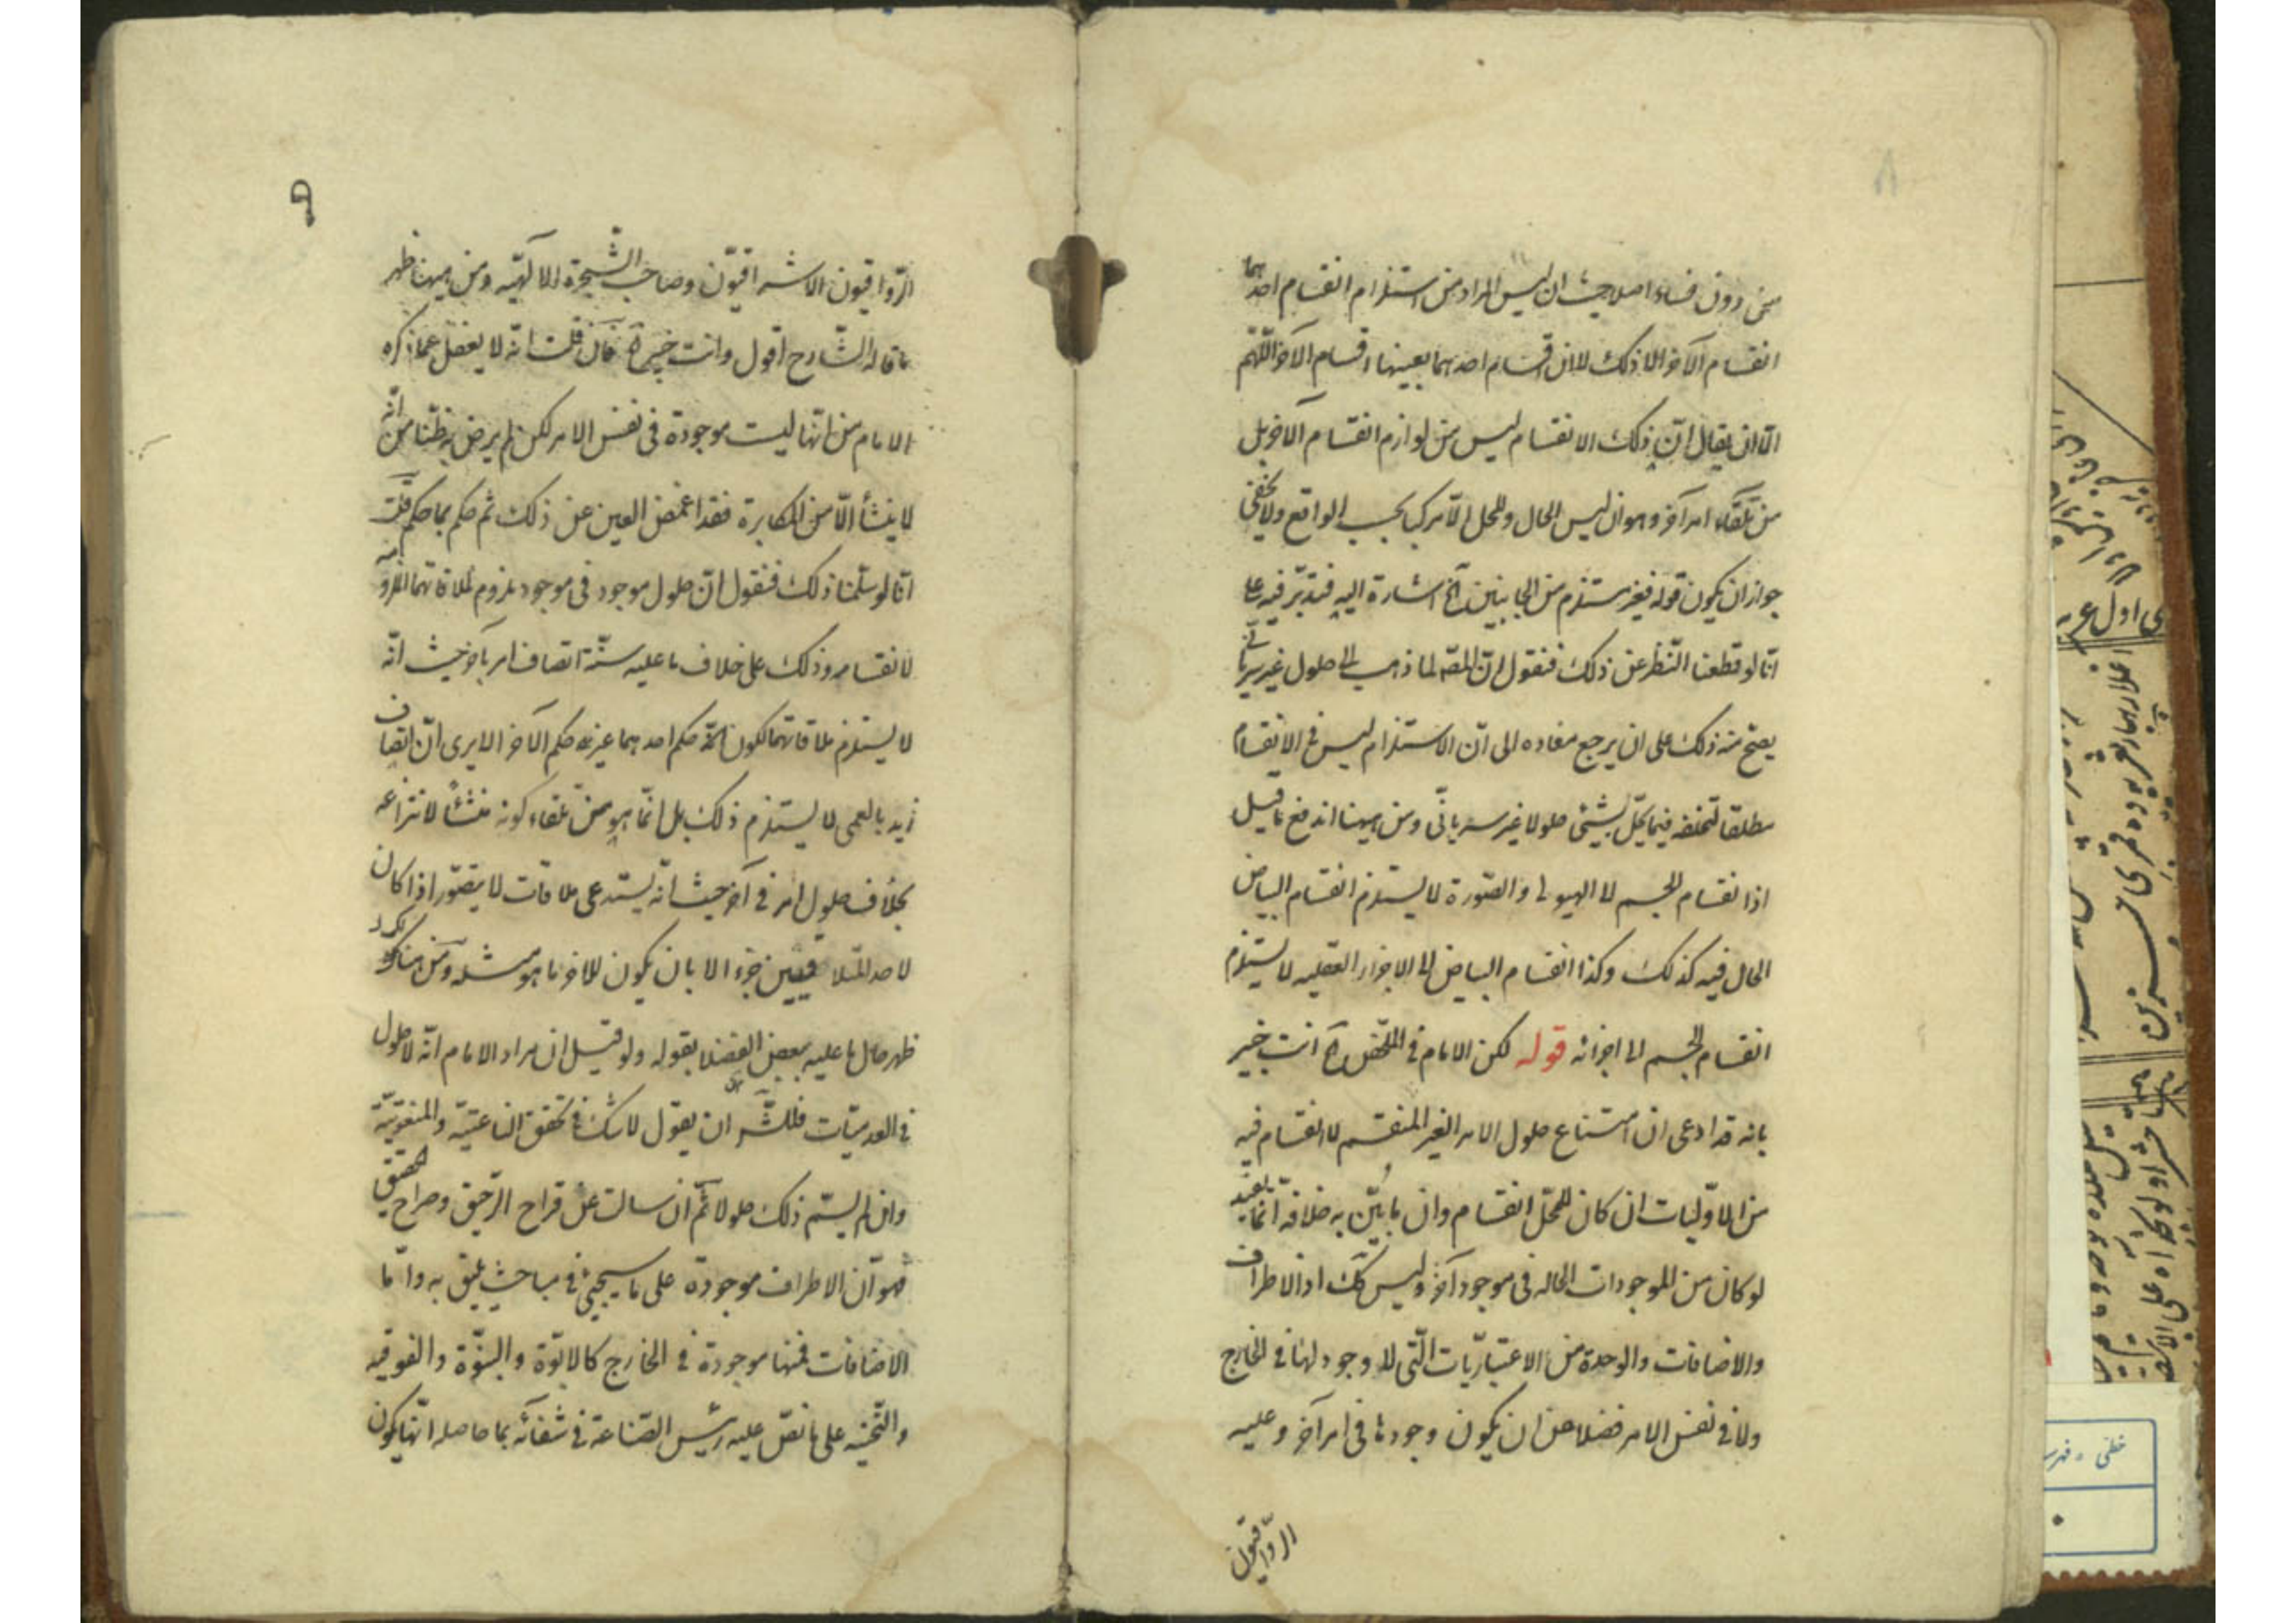 من دون فساد اصلا حيث ان ليس المراد من استلزام انقسام احدهما
انقسام الآخر الا ذلك لا ان اقسام احدهما بعينها اقسام الآخر اللهم
الا ان يقال ان ذلك الانقسام ليس من لوازم انقسام الآخر بل
من تلقاء امر آخر وهو ان ليس الحال والمحل الا مركبا بحسب الواقع ولا يخفى
جواز ان يكون قوله فغير مستلزم من الجانبين آه اشارة اليه فتدبر فيه على
انا لو قطعنا النظر عن ذلك فنقول ان المصّ لما ذهب الى حلول غير سرياني
يصح منه ذلك على ان يرجع مفاده الى ان الاستلزام ليس في الانقسام
مطلقا لتخلفه فيما يحل بشيئ حلولا غير سرياني ومن ههنا اندفع ما قيل
اذا نقسام الجسم لا الهيولى والصّورة لا يستلزم انقسام البياض
الحال فيه كذلك وكذا انقسام البياض الى الاجزاء العقليه لا يستلزم
انقسام الجسم الى اجزائه قوله لكن الامام في الملخص آه انت خبير
بانه قد ادعى ان امتناع حلول الامر الغير المنقسم لانقسام فيه
من الاوّليات ان كان للمحل انقسام وان ما بيّن به خلافه انما يفيد
لو كان من الموجودات الحاله في موجود آخر وليس كك اذ الاطراف
والاضافات والوحدة من الاعتباريّات الّتي لا وجود لها في الخارج
ولا في نفس الامر فضلا عن ان يكون وجودها في امر آخر وعليه
الرّواقيّون
الرّواقيون الاشراقيّون وصاحب الشّجرة الالهيّه ومن ههنا ظهر
ما قاله الشّارح اقول وانت خبير آه فان قلت انه لا يغفل عما ذكره
الامام من انها ليست موجودة في نفس الامر لكن لم يرض به ظنا من انّه
لا ينشأ الّا من المكابرة فقد اغمض العين عن ذلك ثم حكم بما حكم قلت
انا لو سلّمنا ذلك فنقول ان حلول موجود في موجود ملزوم لملاقاتهما
لانقسامه وذلك على خلاف ما عليه سنّة اتصاف امر بآخر حيث انّه
لا يستلزم ملاقاتهما لكون ثمّه حكم احدهما عين حكم الآخر الا يرى ان اتصاف
زيد بالعمى لا يستلزم ذلك بل انّما هو من تلقاء كونه منشأ لانتزاعه
بخلاف حلول امر في آخر حيث انه يستدعى ملاقات لا يتصوّر اذا كان
لاحد المتلاقيين جزء الا بان يكون للاخر ما هو مثله ومن هناك
ظهر حال ما عليه بعض الفضلا بقوله ولو قيل ان مراد الامام انّه لا حلول
في العدميّات فللشّ ان يقول لا شك في تحقق الناعتيّة والمنعوتيّة
وان لم يسمّ ذلك حلولا ثمّ ان سالت عن قراح الرّحيق وصراح التحقيق
فهو ان الاطراف موجودة على ما سيجيئ في مباحث يليق به وامّا
الاضافات فمنها موجودة في الخارج كالابوّة والبنوّة والفوقيه
والتّحتيّه على ما نصّ عليه رئيس الصّناعة في شفائه بما حاصله انّها يكون